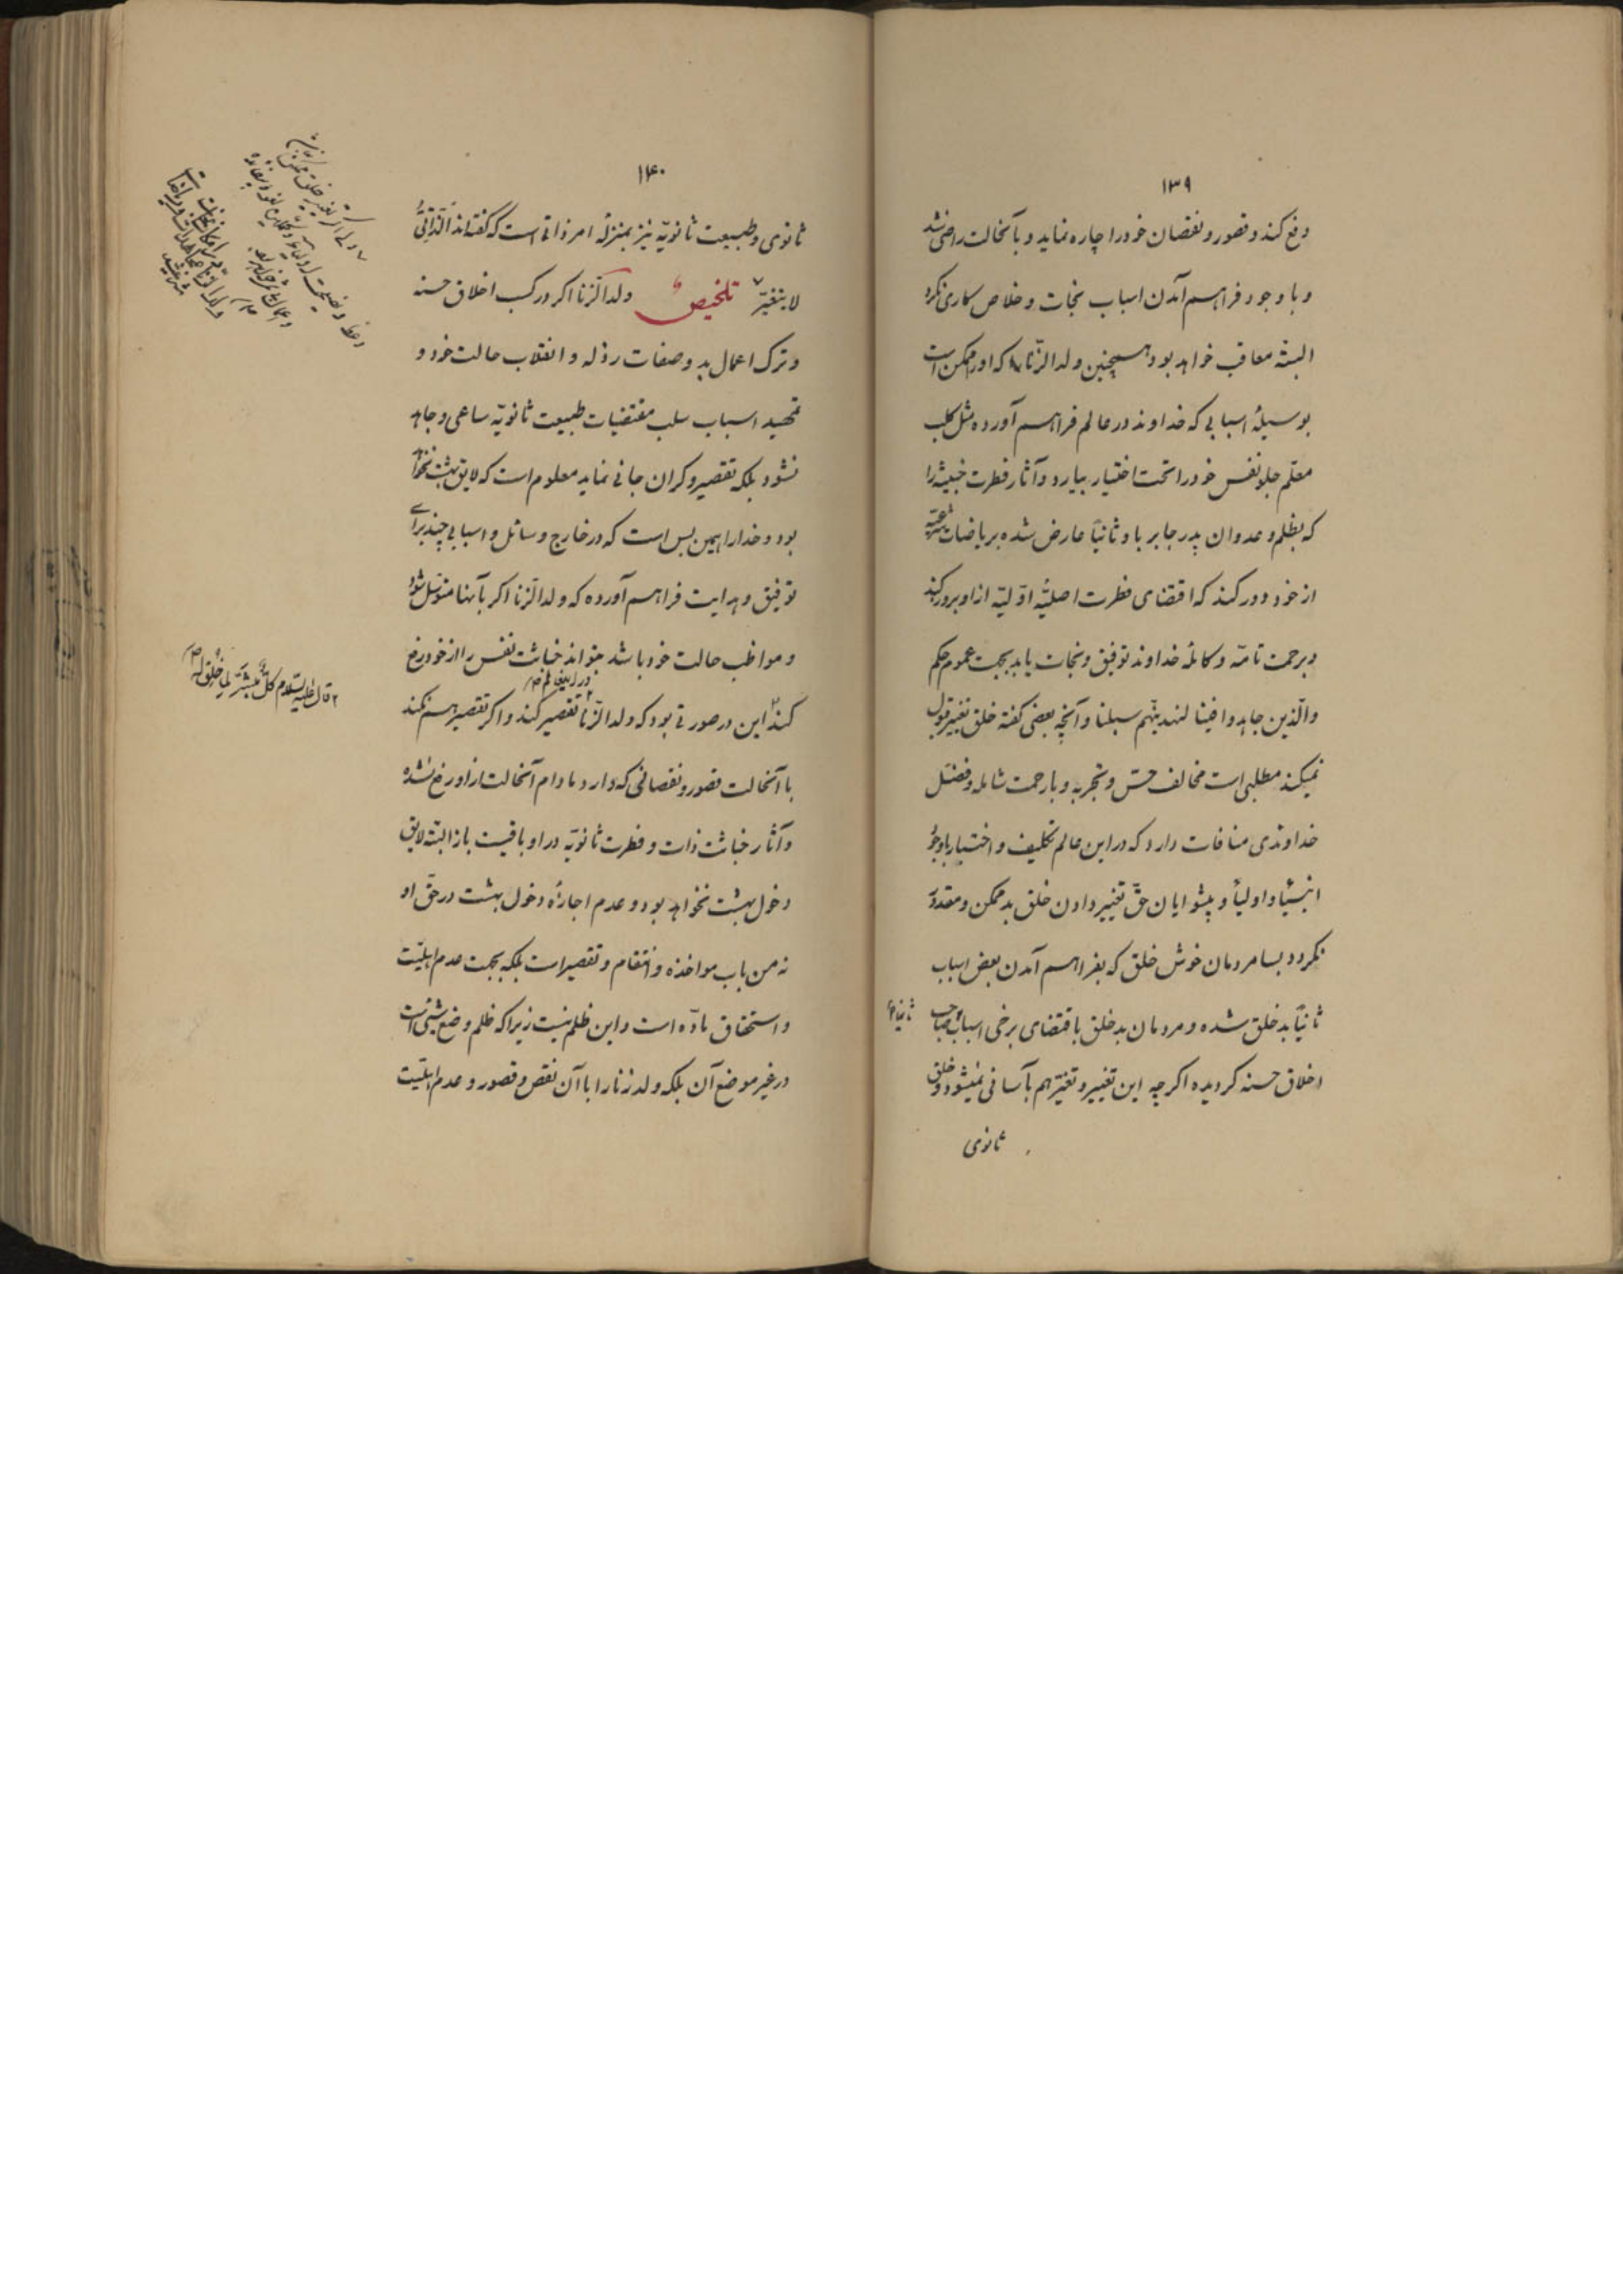 ۱۳۹
دفع کند و قصور و نقصان خود را چاره نماید و بآنحالت راضی شد
و با وجود فراهم آمدن اسباب نجات و خلاص کاری نکرد
البته معاقب خواهد بود همچنین ولد الزّنا که او را ممکن است
بوسیلهٔ اسبابی که خداوند در عالم فراهم آورده مثل کلب
معلّم جلو نفس خود را تحت اختیار بیارد و آثار فطرت خبیثه را
که بظلم و عدوان پدر جابر باو ثانیاً عارض شده بریاضات شرعیّه
از خود دور کند که اقتضای فطرت اصلیّهٔ اوّلیّه از او بروز کند
و برحمت تامّه و کاملهٔ خداوند توفیق و نجات یابد بجهت عموم حکم
والّذین جاهدوا فینا لنهدینّهم سبلنا و آنچه بعضی گفته خلق تغییر قبول
نمیکند مطلبی است مخالف حسّ و تجربه و با رحمت شامله و فضل
خداوندی منافات دارد که در این عالم تکلیف و اختیار باوجود
انبیاء و اولیاء و پیشوایان حقّ تغییر دادن خلق بد ممکن و مقدور
نگردد بسا مردمان خوش خلق که بفراهم آمدن بعض اسباب
ثانیاً بد خلق شده و مردمان بد خلق باقتضای برخی اسباب صاحب
ثانیاً
اخلاق حسنه گردیده اگرچه این تغییر و تغیّر هم بآسانی نمیشود و خلق
ثانوی
۱۴۰
ثانوی و طبیعت ثانویّه نیز بمنزلهٔ امر ذاتی است که گفته‌اند الذّاتیُّ
لا یتغیّر تلخیص ولد الزّنا اگر در کسب اخلاق حسنه
و ترک اعمال بد و صفات رذله و انقلاب حالت خود و
تمهید اسباب سلب مقتضیات طبیعت ثانویّه ساعی و جاهد
نشود بلکه تقصیر و کران جانی نماید معلوم است که لایق بهشت نخواهد
بود و خدا را همین بس است که در خارج وسائل و اسبابی چند برای
توفیق و هدایت فراهم آورده که ولد الزّنا اگر بآنها متوسّل شود
و مواظب حالت خود باشد بتواند خباثت نفس را از خود رفع
کند این در صورتی بود که ولد الزّنا تقصیر کند و اگر تقصیر هم نکند
با آنحالت قصور و نقصانی که دارد مادام آنحالت از او رفع نشده
و آثار خباثت ذات و فطرت ثانویّه در او باقیست باز البته لایق
دخول بهشت نخواهد بود و عدم اجازهٔ دخول بهشت در حقّ او
نه من باب مواخذه و انتقام و تقصیر است بلکه بجهت عدم اهلیّت
و استحقاق مادّه است و این ظلم نیست زیرا که ظلم وضع شیئی است
در غیر موضع آن بلکه ولد زنا را با آن نقص و قصور و عدم اهلیّت
۲ قال علیه السلام کلّ میسّر لما خلق له